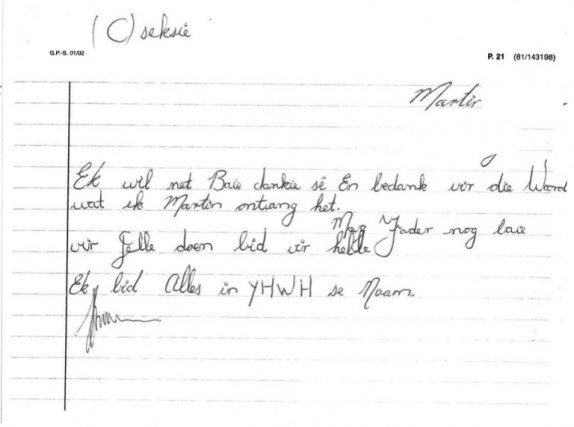 (C) seksie
G.P.-S. 01/02
P. 21 (81/143198)
Martin
Ek wil net Baie dankie sê En bedank vir die Woord
wat ek Martin ontvang het.
Mag Vader nog baie
vir Julle doen bid vir
Ek bid Alles in YHWH se Naam.